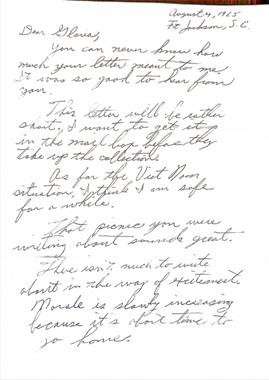 August 4, 1965
Ft Jackson, S.C.
Dear
You can never know how
much your letter meant to me.
It was so good to hear from
you.
This letter will be rather
short, I want to get it
in the mail box before they
take up the collection.
As for the Viet Nam
situation, I think I am safe
for a while.
That picnic you were
writing about sounds great.
There isn't much to write
about in the way of excitement.
Morale is slowly increasing
because it's about time to
go home.